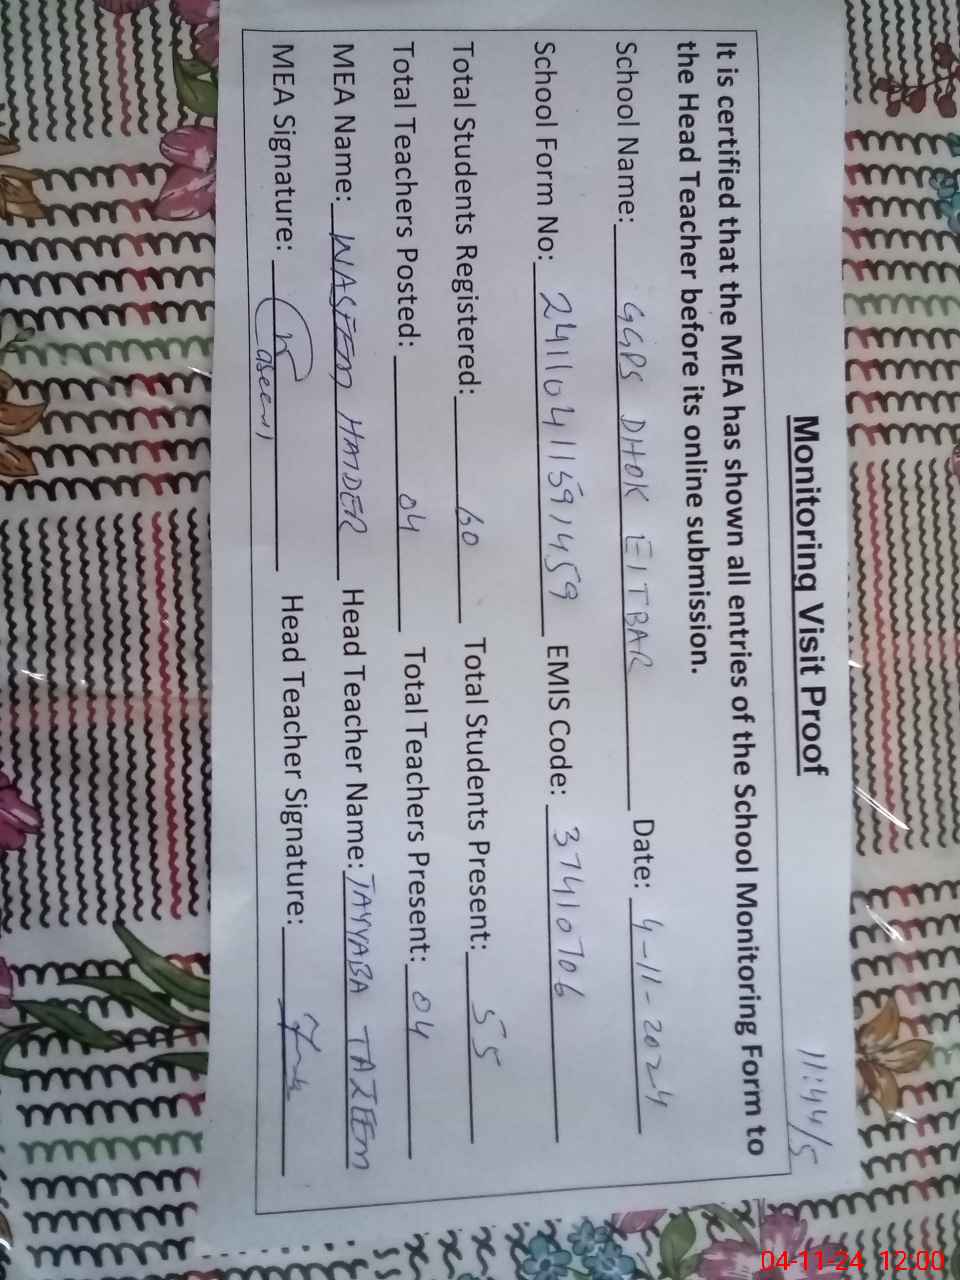 11:44/5
Monitoring Visit Proof
It is certified that the MEA has shown all entries of the School Monitoring Form to
the Head Teacher before its online submission.
School Name: GGPS DHOK EITBAR Date: 4-11-2024
School Form No: 24110411591459 EMIS Code: 37410706
Total Students Registered: 60 Total Students Present: 55
Total Teachers Posted: 04 Total Teachers Present: 04
MEA Name: WASEEM HAIDER Head Teacher Name: TAYYABA TAZEEM
MEA Signature: Waseem Head Teacher Signature:
04-11-24 12:00